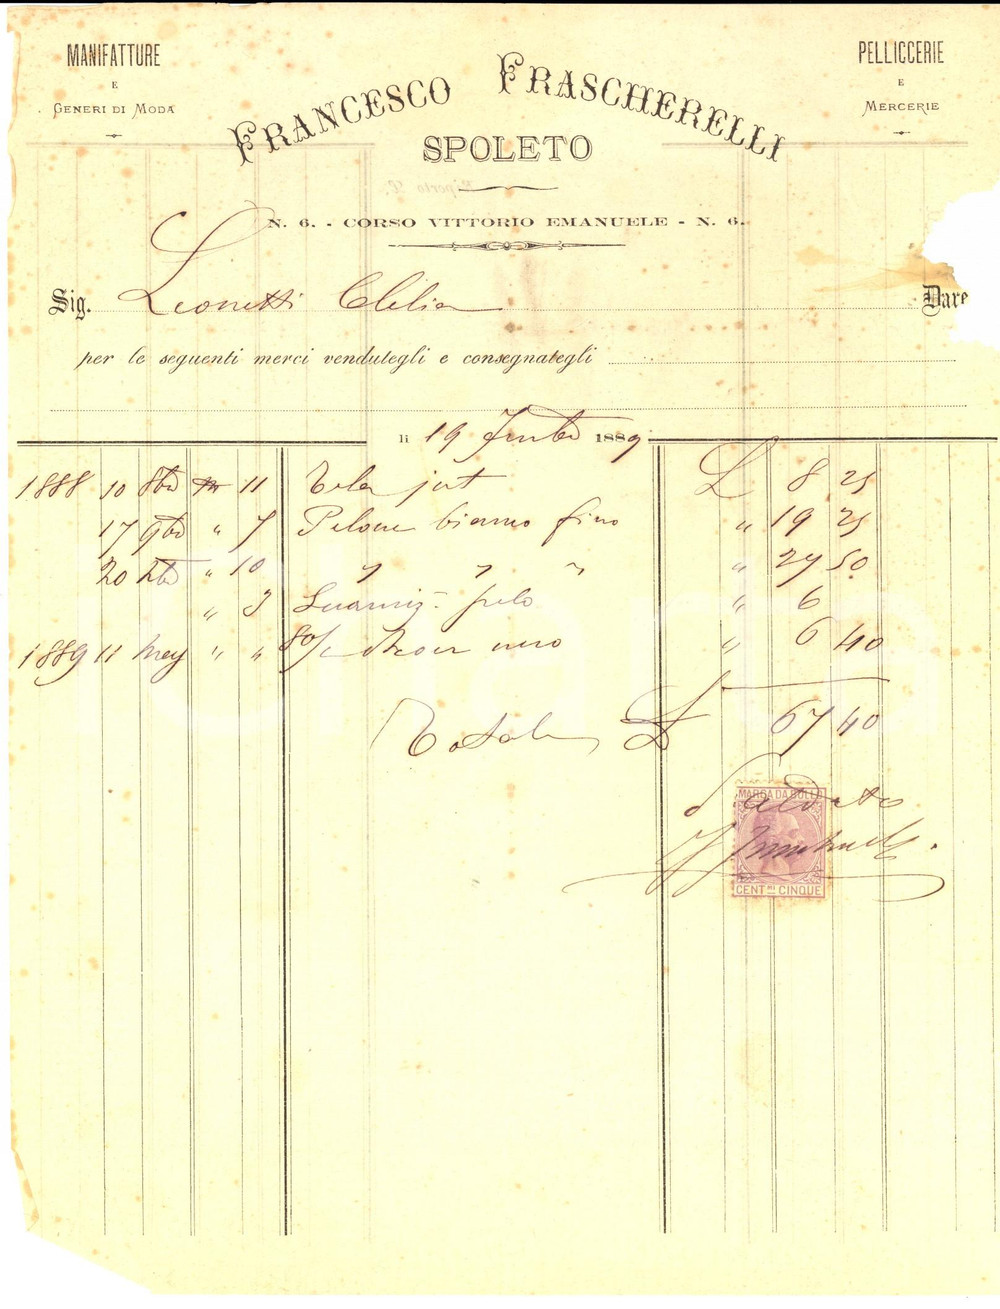 MANIFATTURE
E
GENERI DI MODA
PELLICCERIE
E
MERCERIE
FRANCESCO FRASCHERELLI
SPOLETO
N. 6. - CORSO VITTORIO EMANUELE - N. 6.
Sig. Leonetti Clelia Dare
per le seguenti merci vendutegli e consegnategli
li 19 1889
1888 10 8bre 11 Tela L 8 25
17 9bre " 7 bianco fino " 19 25
20 Xbre " 10 " " " " 27 50
" 3 pelo " 6
1889 11 " " 80/c nero " 6 40
Totale L 67 40
MARCA DA BOLLO
Saldato
CENT.MI CINQUE